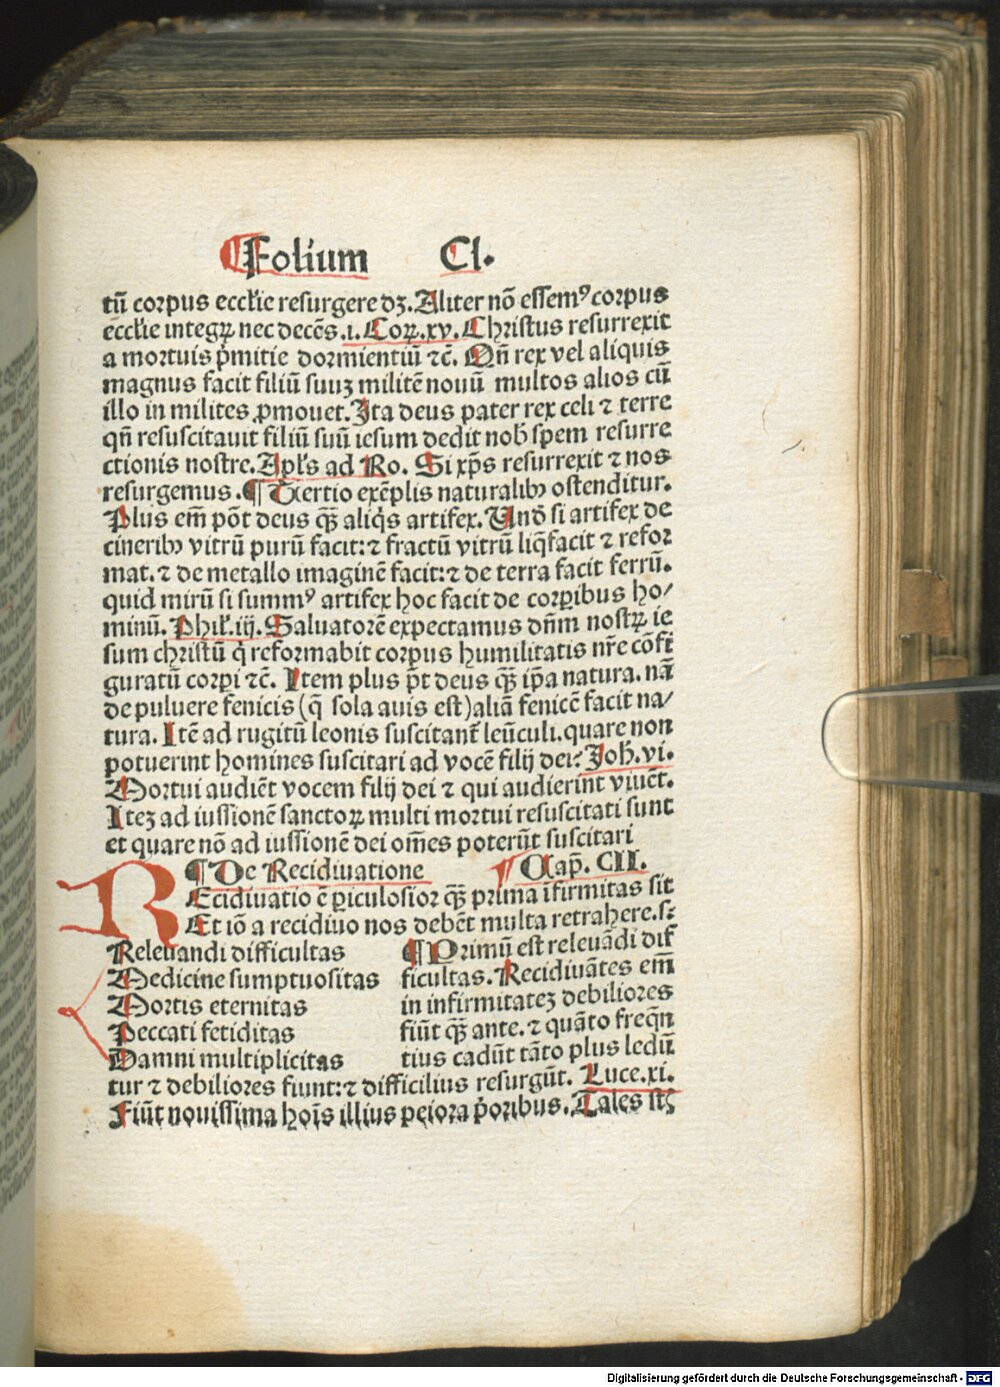 ¶Folium Cl.
tū corpus eccl'ie resurgere dꝫ. Aliter nō essemꝰ corpus
eccl'ie integꝝ nec decēs .i. Coꝝ. xv. Christus resurrexit
a mortuis p̄mitie dormientiū ⁊c̄. Qn̄ rex vel aliquis
magnus facit filiū suuꝫ militē nouū multos alios cū
illo in milites ꝓmouet. Ita deus pater rex celi ⁊ terre
qn̄ resuscitauit filiū suū iesum dedit nob̄ spem resurre
ctionis nostre. Apl's ad Ro. Si xp̄s resurrexit ⁊ nos
resurgemus. ¶ Tertio exēplis naturalibꝫ ostenditur.
Plus em̄ pōt deus qȝ̄ aliq̇s artifex. Vnd̄ si artifex de
cineribꝫ vitrū purū facit: ⁊ fractū vitrū liq̄facit ⁊ refor
mat. ⁊ de metallo imaginē facit: ⁊ de terra facit ferrū.
quid mirū si summꝰ artifex hoc facit de corꝑibus ho/
minū. Phil'. iij. Saluatorē expectamus dn̄m nostꝝ ie
sum christū q̇ reformabit corpus humilitatis nr̄e cōfi
guratū corpi ⁊c̄. Item plus p̄t deus qȝ̄ ip̄a natura. nā
de puluere fenicis (q̄ sola auis est) aliā fenicē facit na/
tura. Itē ad rugitū leonis suscitant̄ leūculi. quare non
potuerint homines suscitari ad vocē filij dei? Joh̄. vi.
Mortui audiēt vocem filij dei ⁊ qui audierint viuēt.
Iteꝫ ad iussionē sanctoꝝ multi mortui resuscitati sunt
et quare nō ad iussionē dei om̄es poterūt suscitari
¶ De Recidiuatione ¶ Cap̄. CII.
REcidiuatio ē ꝑiculosior qȝ̄ prima īfirmitas sit
Et iō a recidiuo nos debēt multa retrahere. sꝫ
Releuandi difficultas ¶ Primū est releuādi dif
Medicine sumptuositas ficultas. Recidiuātes em̄
Mortis eternitas in infirmitateꝫ debiliores
Peccati fetiditas fiūt qȝ̄ ante. ⁊ quāto freq̄n
Damni multiplicitas tius cadūt tāto plus ledū
tur ⁊ debiliores fiunt: ⁊ difficilius resurgūt. Luce. xi.
Fiūt nouissima hoīs illius peiora p̄oribus. Tales
Digitalisierung gefördert durch die Deutsche Forschungsgemeinschaft - DFG